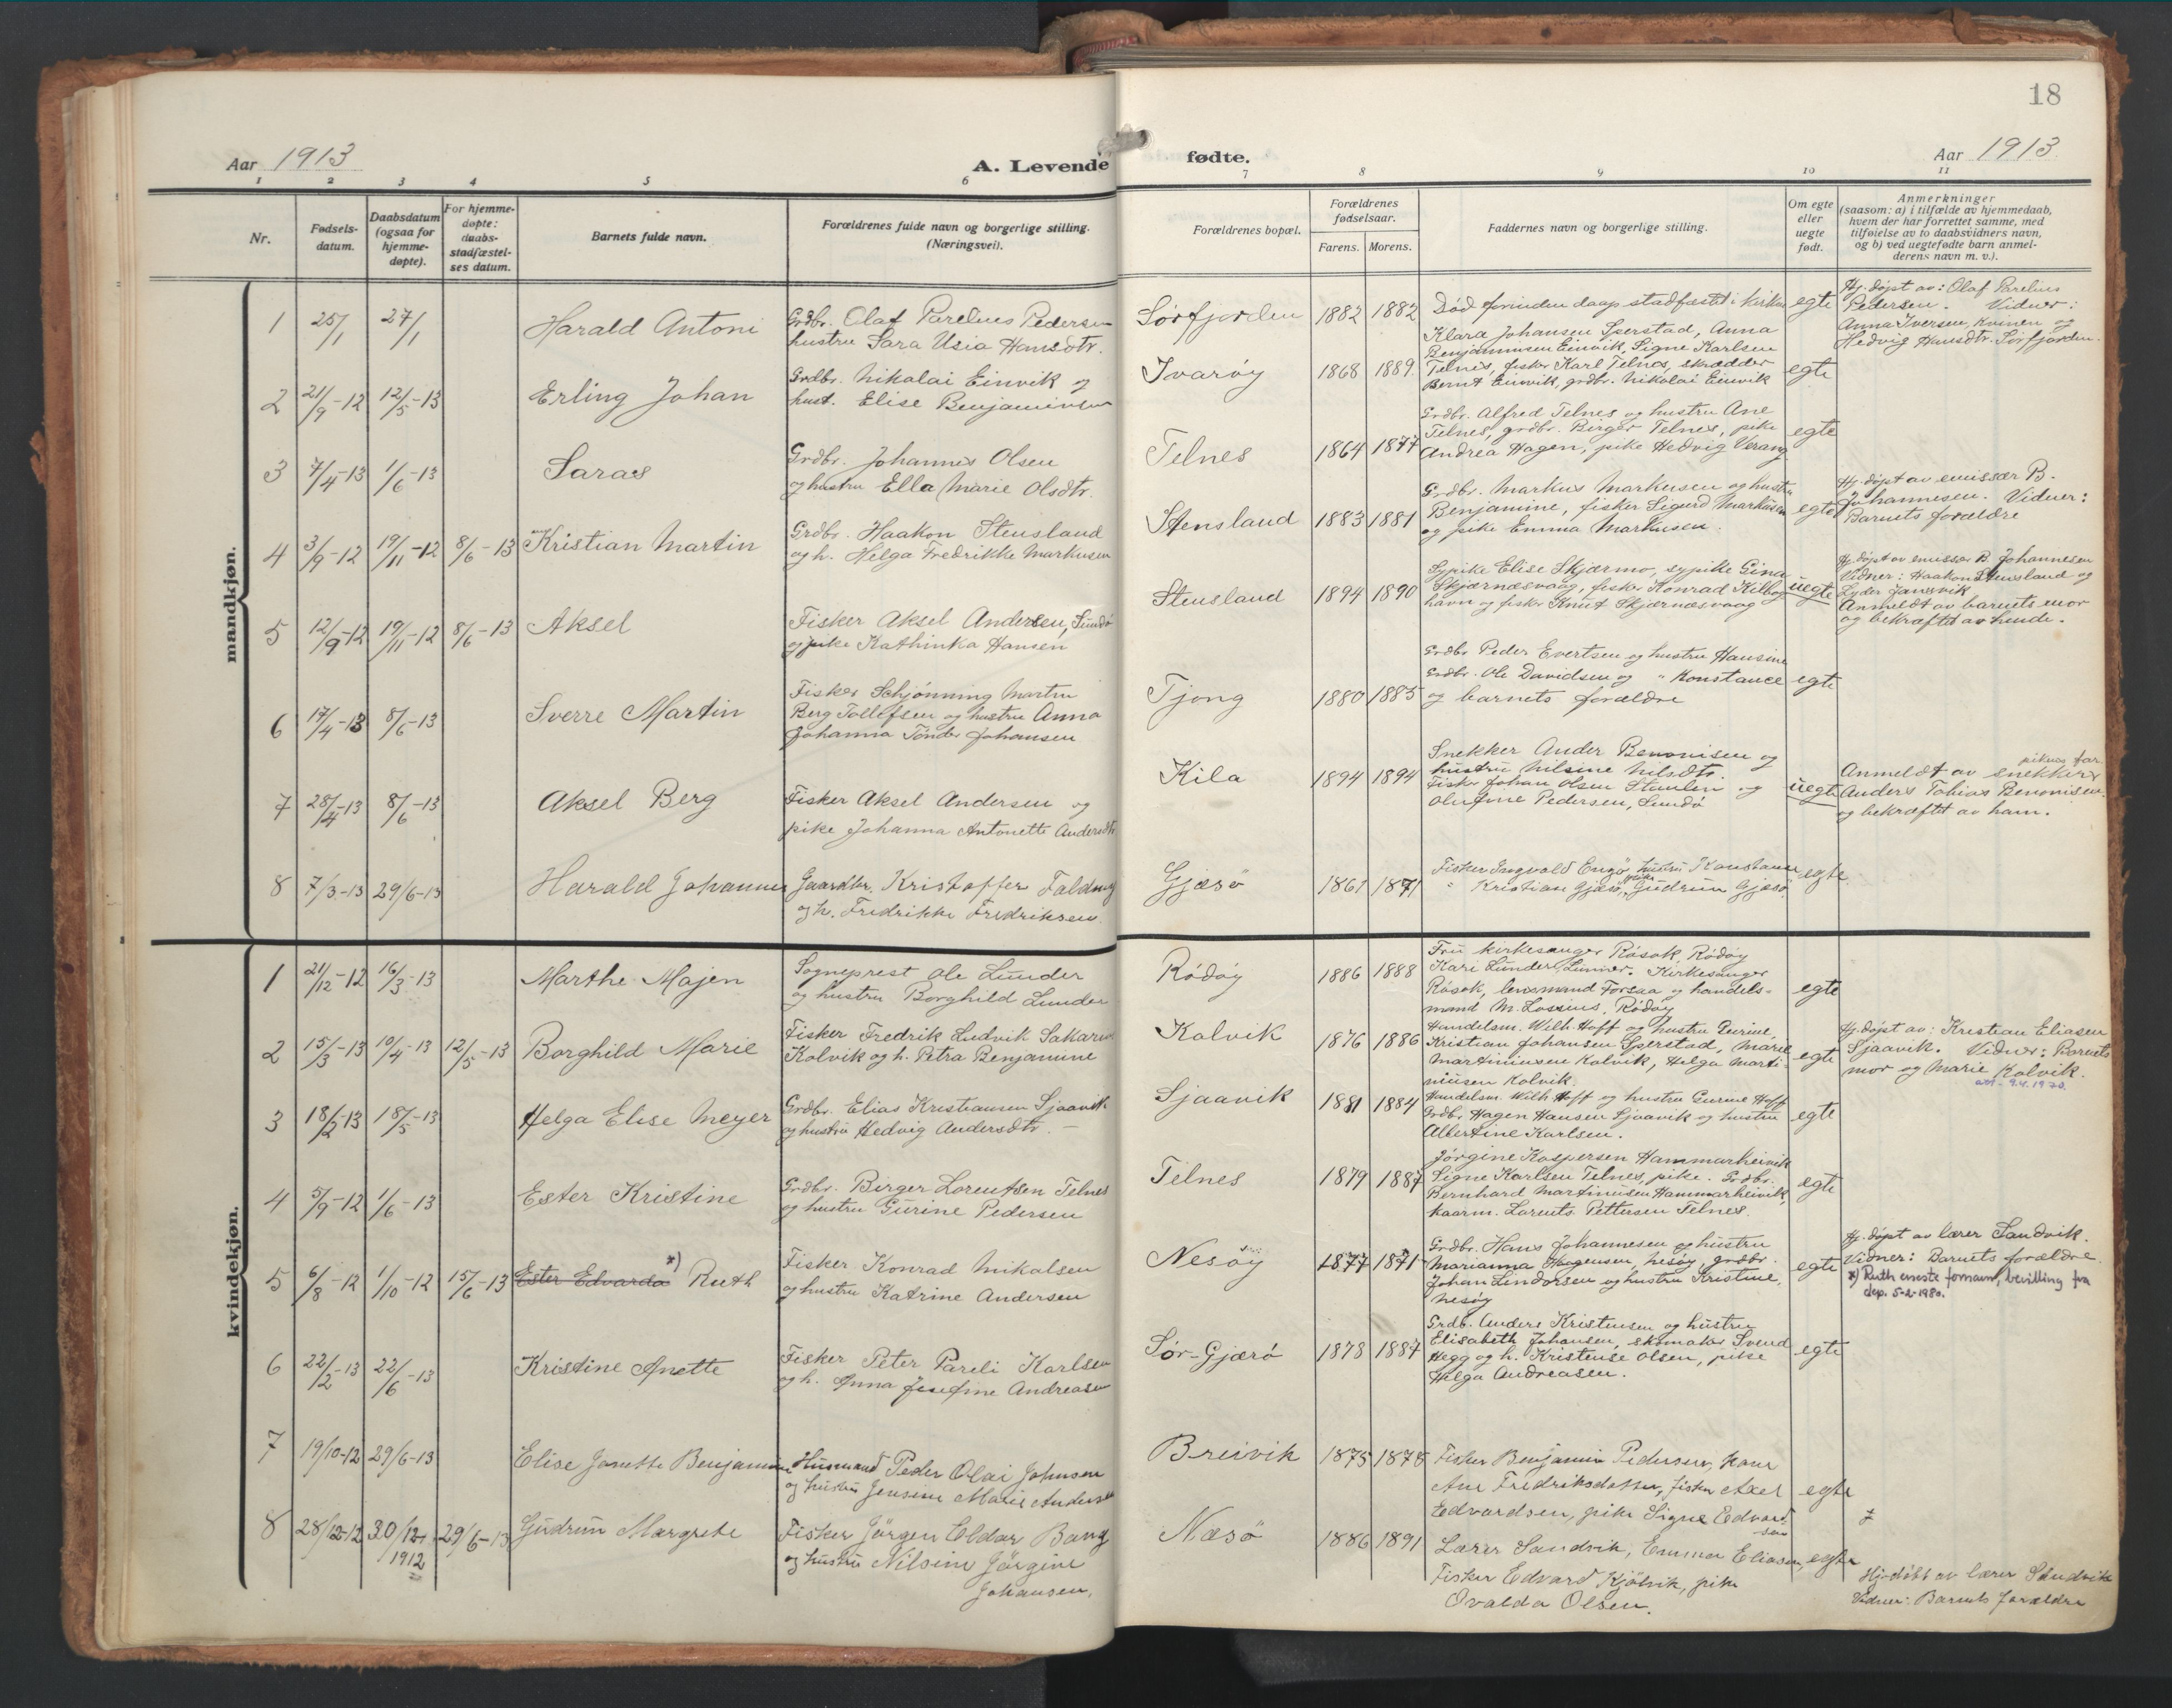 18
Aar 1913
A. Levende fødte.
Aar 1913
1 2 3 4 5 6 7 8 9 10 11
Nr.
Fødsels-
datum.
Daabsdatum
(ogsaa for
hjemme-
døpte).
For hjemme-
døpte:
daabs-
stadfæstel-
ses datum.
Barnets fulde navn.
Forældrenes fulde navn og borgerlige stilling.
(Næringsvei).
Forældrenes bopæl.
Forældrenes
fødselsaar.
Farens. Morens.
Faddernes navn og borgerlige stilling.
Om egte
eller
uegte
født.
Anmerkninger
(saasom: a) i tilfælde av hjemmedaab,
hvem der har forrettet samme, med
tilføielse av to daabsvidners navn,
og b) ved uegtefødte barn anmel-
derens navn m. v.).
mandkjøn.
1 25/1 27/1 Harald Antoni
Grdbr. Olaf Parelius Pedersen
hustru Sara Usia Hansdtr.
Sørfjorden 1882 1882
Død forinden daap stadfæstet i kirken
egte
Hj. døpt av: Olaf Parelius
Pedersen. Vidner:
Anna Iversen, Kvinen og
Hedvig Hansdtr. Sørfjorden.
2 21/9-12 12/5-13 Erling Johan
Grdbr. Nikolai Einvik og
hust. Elise Benjaminsen
Ivarøy 1868 1889
Klara Johansen Sperstad, Anna
Benjaminsen Einvik, Signe Karlsen
Telnes, fisker Karl Telnes, skrædder
Bernt Einvik, grdbr. Nikolai Einvik
egte
3 7/4-13 1/6-13 Saras
Grdbr. Johannes Olsen
og hustru Ella Marie Olsdtr.
Telnes 1864 1877
Grdbr. Alfred Telnes og hustru Ane
Telnes, grdbr. Birger Telnes, pike
Andrea Hagen, pike Hedvig Verang
egte
4 3/9-12 19/11-12 8/6-13 Kristian Martin
Grdbr. Haakon Stensland
og h. Helga Fredrikke Markusen
Stensland 1883 1881
Grdbr. Markus Markusen og hustru
Benjamine, fisker Sigurd Markusen
og pike Emma Markusen.
egte
Hj. døpt av emissær B.
Johannesen. Vidner:
Barnets forældre
5 12/9-12 19/11-12 8/6-13 Aksel
Fisker Aksel Andersen, Sundø
og pike Kathinka Hansen
Stensland 1894 1890
Sypike Elise Skjærmo, sypike Gina
Skjærnæsvaag, fisker Konrad Kilbog
havn og fisker Knut Skjærnæsvaag
uegte
Hj. døpt av emissær B. Johannesen
Vidner: Haakon Stensland og
Lyder Jansvik
Anmeldt av barnets mor
og bekræftet av hende.
6 17/4-13 8/6-13 Sverre Martin
Fisker Schjønning Martin
Berg Tollefsen og hustru Anna
Johanna Tønder Johansen
Tjong 1880 1885
Grdbr Peder Evertsen og hustru Hansine
Grdbr. Ole Davidsen og " Konstance
og barnets forældre
egte
7 28/4-13 8/6-13 Aksel Berg
Fisker Aksel Andersen og
pike Johanna Antonette Andersdtr
Kila 1894 1894
Snekker Ander Benonisen og
hustru Nilsine Nilsdtr.
Fisker Johan Olsen Staulen og
Olufine Pedersen, Sundø
uegte
pikens far
Anmeldt av snekker
Anders Tobias Benonisen.
og bekræftet av ham.
8 7/3-13 29/6-13 Harald Johannes
Gaardbr. Kristoffer Falding
og h. Fredrikke Fredriksen.
Gjæsø 1861 1871
Fisker Ingvald Engø, hustru Konstanse
" Kristian Gjæsø, pike Gudrun Gjæsø
egte
kvindekjøn.
1 21/12-12 16/3-13 Marthe Majen
Sogneprest Ole Lunder
og hustru Borghild Lunder
Rødøy 1886 1888
Fru kirkesanger Røsok, Rødøy
Kari Lunder, Lunner. Kirkesanger
Røsok, lensmand Forsaa og handels-
mand M. Lossius, Rødøy
egte
2 15/3-13 10/4-13 12/5-13 Borghild Marie
Fisker Fredrik Ludvik Sakarias
Kolvik og h. Petra Benjamine
Kolvik 1876 1886
Handelsm. Wilh. Hoff og hustru Gurine,
Kristian Johansen Sperstad, Marie
Martiniusen Kolvik, Helga Marti-
niusen Kolvik.
egte
Hj. døpt av: Kristian Eliasen
Sjaavik. Vidner: Barnets
mor og Marie Kolvik.
9.4.1970.
3 18/2-13 18/5-13 Helga Elise Meyer
Grdbr. Elias Kristiansen Sjaavik
og hustru Hedvig Andersdtr.
Sjaavik 1881 1884
Handelsm. Wilh. Hoff og hustru Gurine Hoff
Grdbr. Hagen Hansen Sjaavik og hustru
Albertine Karlsen.
egte
4 5/9-12 1/6-13 Ester Kristine
Grdbr. Birger Lorentsen Telnes
og hustru Gurine Pedersen
Telnes 1879 1887
Jørgine Kaspersen Hammarheivik
Signe Karlsen Telnes, pike. Grdbr.
Bernhard Martinusen Hammarheivik,
kaarm. Lorents Pettersen Telnes.
egte
5 6/8-12 1/10-12 15/6-13 Ester Edvarda *) Ruth
Fisker Konrad Mikalsen
og hustru Katrine Andersen
Nesøy 1877 1871
Grdbr. Hans Johannesen og hustru
Marianna Haagensen, Nesøy, grdbr.
Johan Lindorsen og hustru Kristine,
Nesøy
egte
Hj. døpt av lærer Sandvik.
Vidner: Barnets forældre
*) Ruth eneste fornavn, bevilling fra
dep. 5-2-1980.
6 22/2-13 22/6-13 Kristine Anette
Fisker Peter Pareli Karlsen
og h. Anna Josefine Andreasen
Sør-Gjærø 1878 1887
Grdb. Anders Kristensen og hustru
Elisabeth Johansen, skomaker Svend
Hegg og h. Kristense Olsen, pike
Helga Andreasen.
egte
7 19/10-12 29/6-13 Elise Janette Benjamine
Husmand Peder Olai Johnsen
og hustru Jensine Marie Andersen
Breivik 1875 1878
Fisker Benjamin Pedersen, kone
Ane Fredriksdatter, fisker Axel
Edvardsen, pike Signe Edvard-
sen
egte
8 28/12-12 30/12 1912 29/6-13 Gudrun Margrete
Fisker Jørgen Eldar Bang
og hustru Nilsine Jørgine
Johansen.
Næsø 1886 1891
Lærer Sandvik, Emma Eliasen,
Fisker Edvard Kjølvik, pike
Ovalda Olsen.
egte
Hj. døbt av lærer Sandvik
Vidner: Barnets forældre